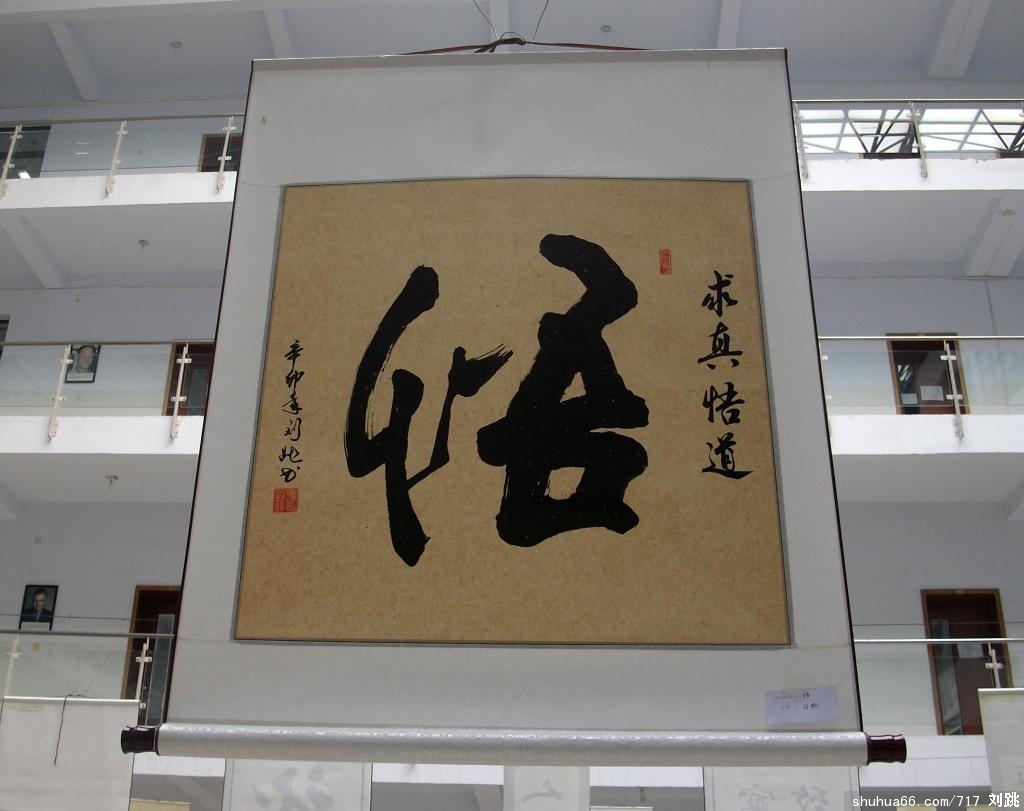 求真悟道
悟
辛卯年刘跳书
shuhua66.com/717 刘跳